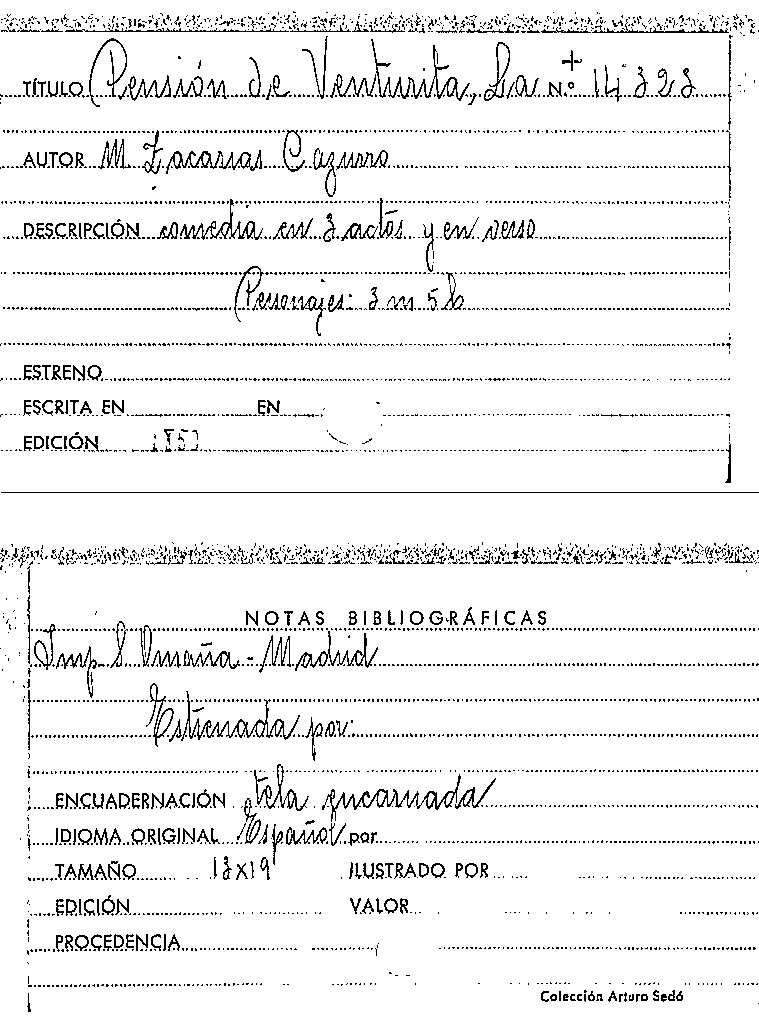 TÍTULO Pensión de Venturita, La N.º + 14323
AUTOR M Zacarias Cazurro
DESCRIPCIÓN comedia en 3 actos y en verso
Personajes: 3 m 5 h
ESTRENO
ESCRITA EN EN
EDICIÓN
NOTAS BIBLIOGRÁFICAS
Imp. S. Omaña - Madrid
Estrenada por:
ENCUADERNACIÓN tela encarnada
IDIOMA ORIGINAL Español por
TAMAÑO 13x19 ILUSTRADO POR
EDICIÓN VALOR
PROCEDENCIA
Colección Arturo Sedó